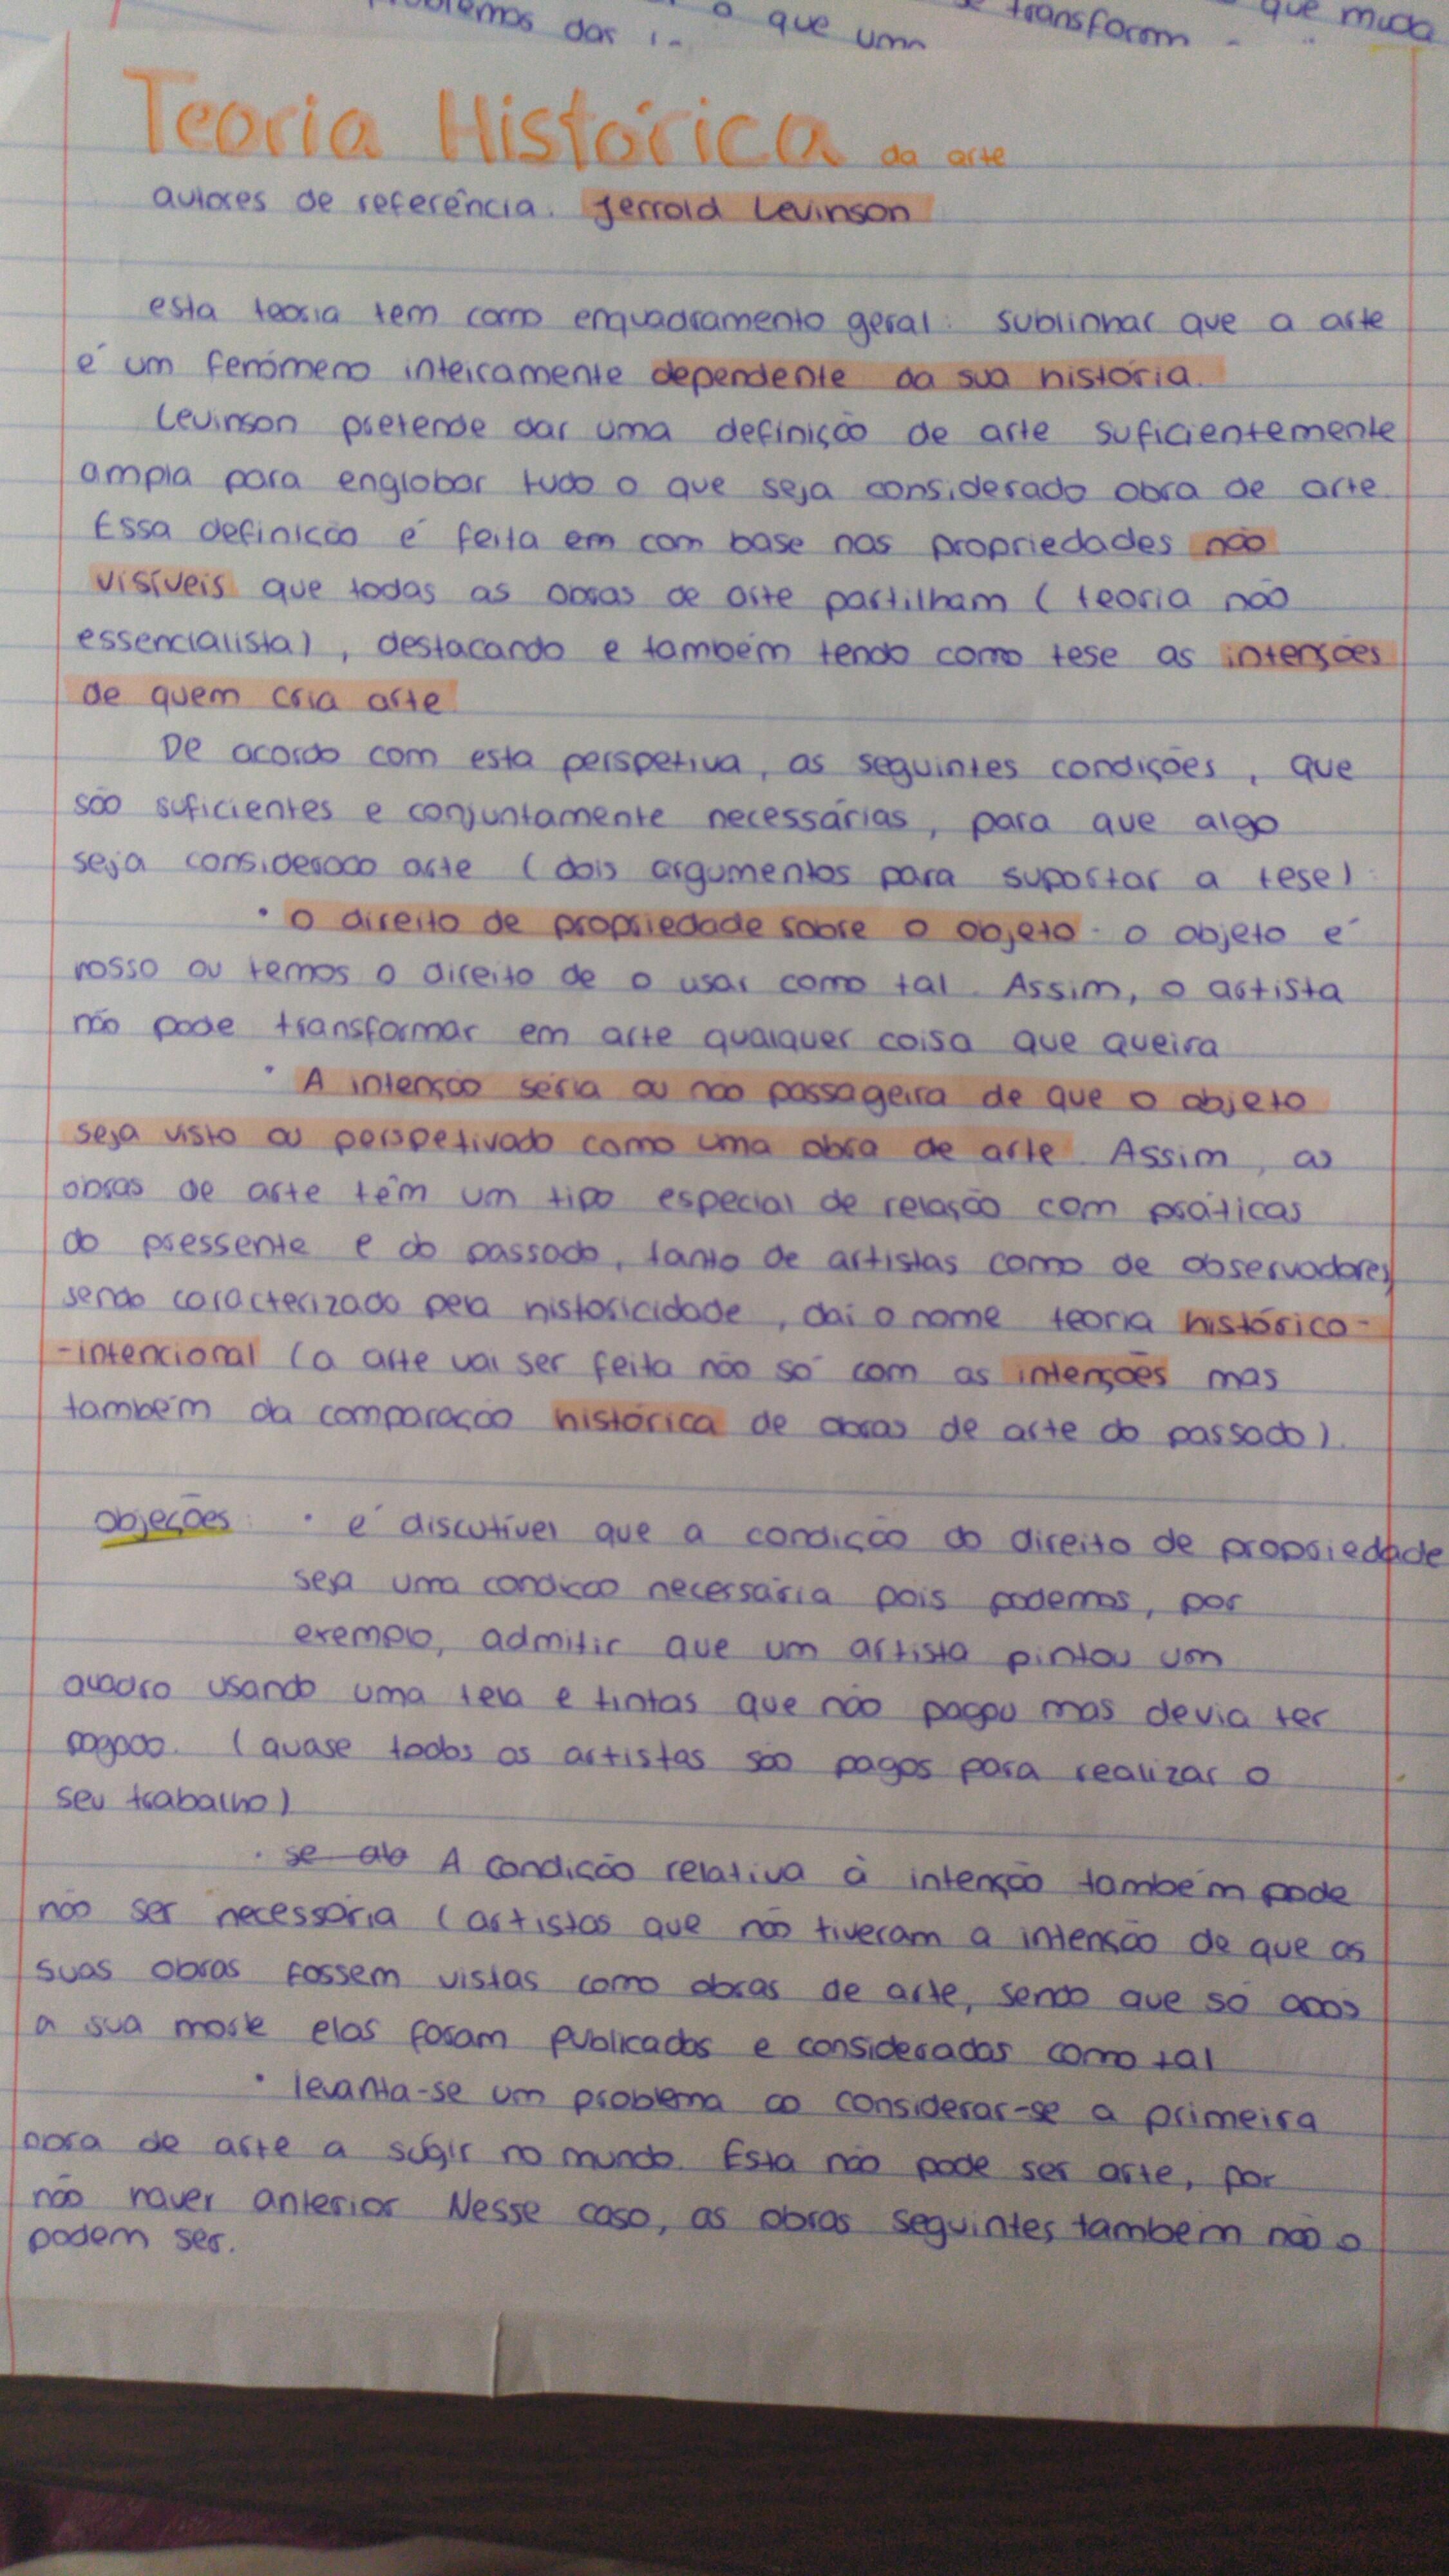 que um
transforam
que muda
Teoria Histórica da arte
autores de referência. Jerrold Levinson
esta teoria tem como enquadramento geral: sublinhar que a arte
é um fenómeno inteiramente dependente da sua história.
Levinson pretende dar uma definição de arte suficientemente
ampla para englobar tudo o que seja considerado obra de arte.
Essa definição é feita em com base nas propriedades não
visíveis que todas as obras de arte partilham (teoria não
essencialista), destacando e também tendo como tese as intenções
de quem cria arte
De acordo com esta perspetiva, as seguintes condições, que
são suficientes e conjuntamente necessárias, para que algo
seja considerado arte (dois argumentos para suportar a tese):
• o direito de propriedade sobre o objeto - o objeto é
nosso ou temos o direito de o usar como tal. Assim, o artista
não pode transformar em arte qualquer coisa que queira
• A intenção séria ou não passageira de que o objeto
seja visto ou perspetivado como uma obra de arte. Assim, as
obras de arte têm um tipo especial de relação com práticas
do pressente e do passado, tanto de artistas como de observadores,
sendo caracterizado pela historicidade, daí o nome teoria histórico-
-intencional (a arte vai ser feita não só com as intenções mas
também da comparação histórica de obras de arte do passado).
objeções: • é discutível que a condição do direito de propriedade
seja uma condição necessária pois podemos, por
exemplo, admitir que um artista pintou um
quadro usando uma tela e tintas que não pagou mas devia ter
pagado. (quase todos os artistas são pagos para realizar o
seu trabalho)
• se ab A condição relativa à intenção também pode
não ser necessária (artistas que não tiveram a intensão de que as
suas obras fossem vistas como obras de arte, sendo que só após
a sua morte elas foram publicadas e consideradas como tal
• levanta-se um problema ao considerar-se a primeira
obra de arte a sugir no mundo. Esta não pode ser arte, por
não haver anterior. Nesse caso, as obras seguintes também não o
podem ser.